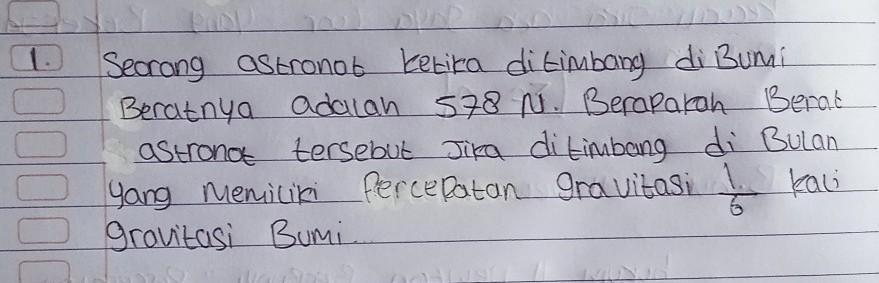 1. Seorang astronot ketika ditimbang di Bumi
Beratnya adalah 578 N. Berapakah Berat
astronot tersebut Jika ditimbang di Bulan
yang Memiliki Percepatan gravitasi 1/6 kali
gravitasi Bumi.